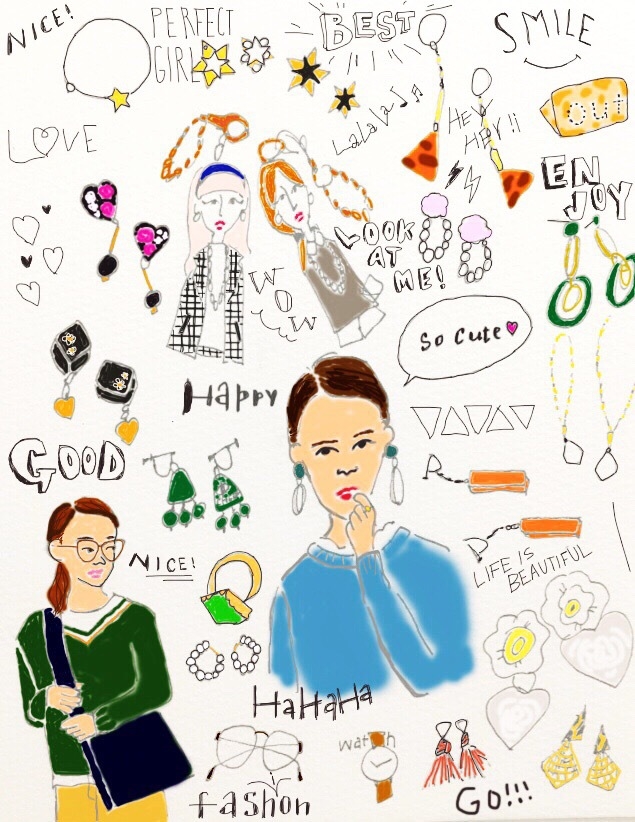 NICE!
PERFECT
GIRL
BEST
SMILE
LaLaLa
HEY
HEY!!
out
LOVE
EN
JOY
LOOK
AT
ME!
WOW
So cute
Happy
GOOD
NICE!
LIFE IS
BEAUTIFUL
HaHaHa
watch
fashon
Go!!!